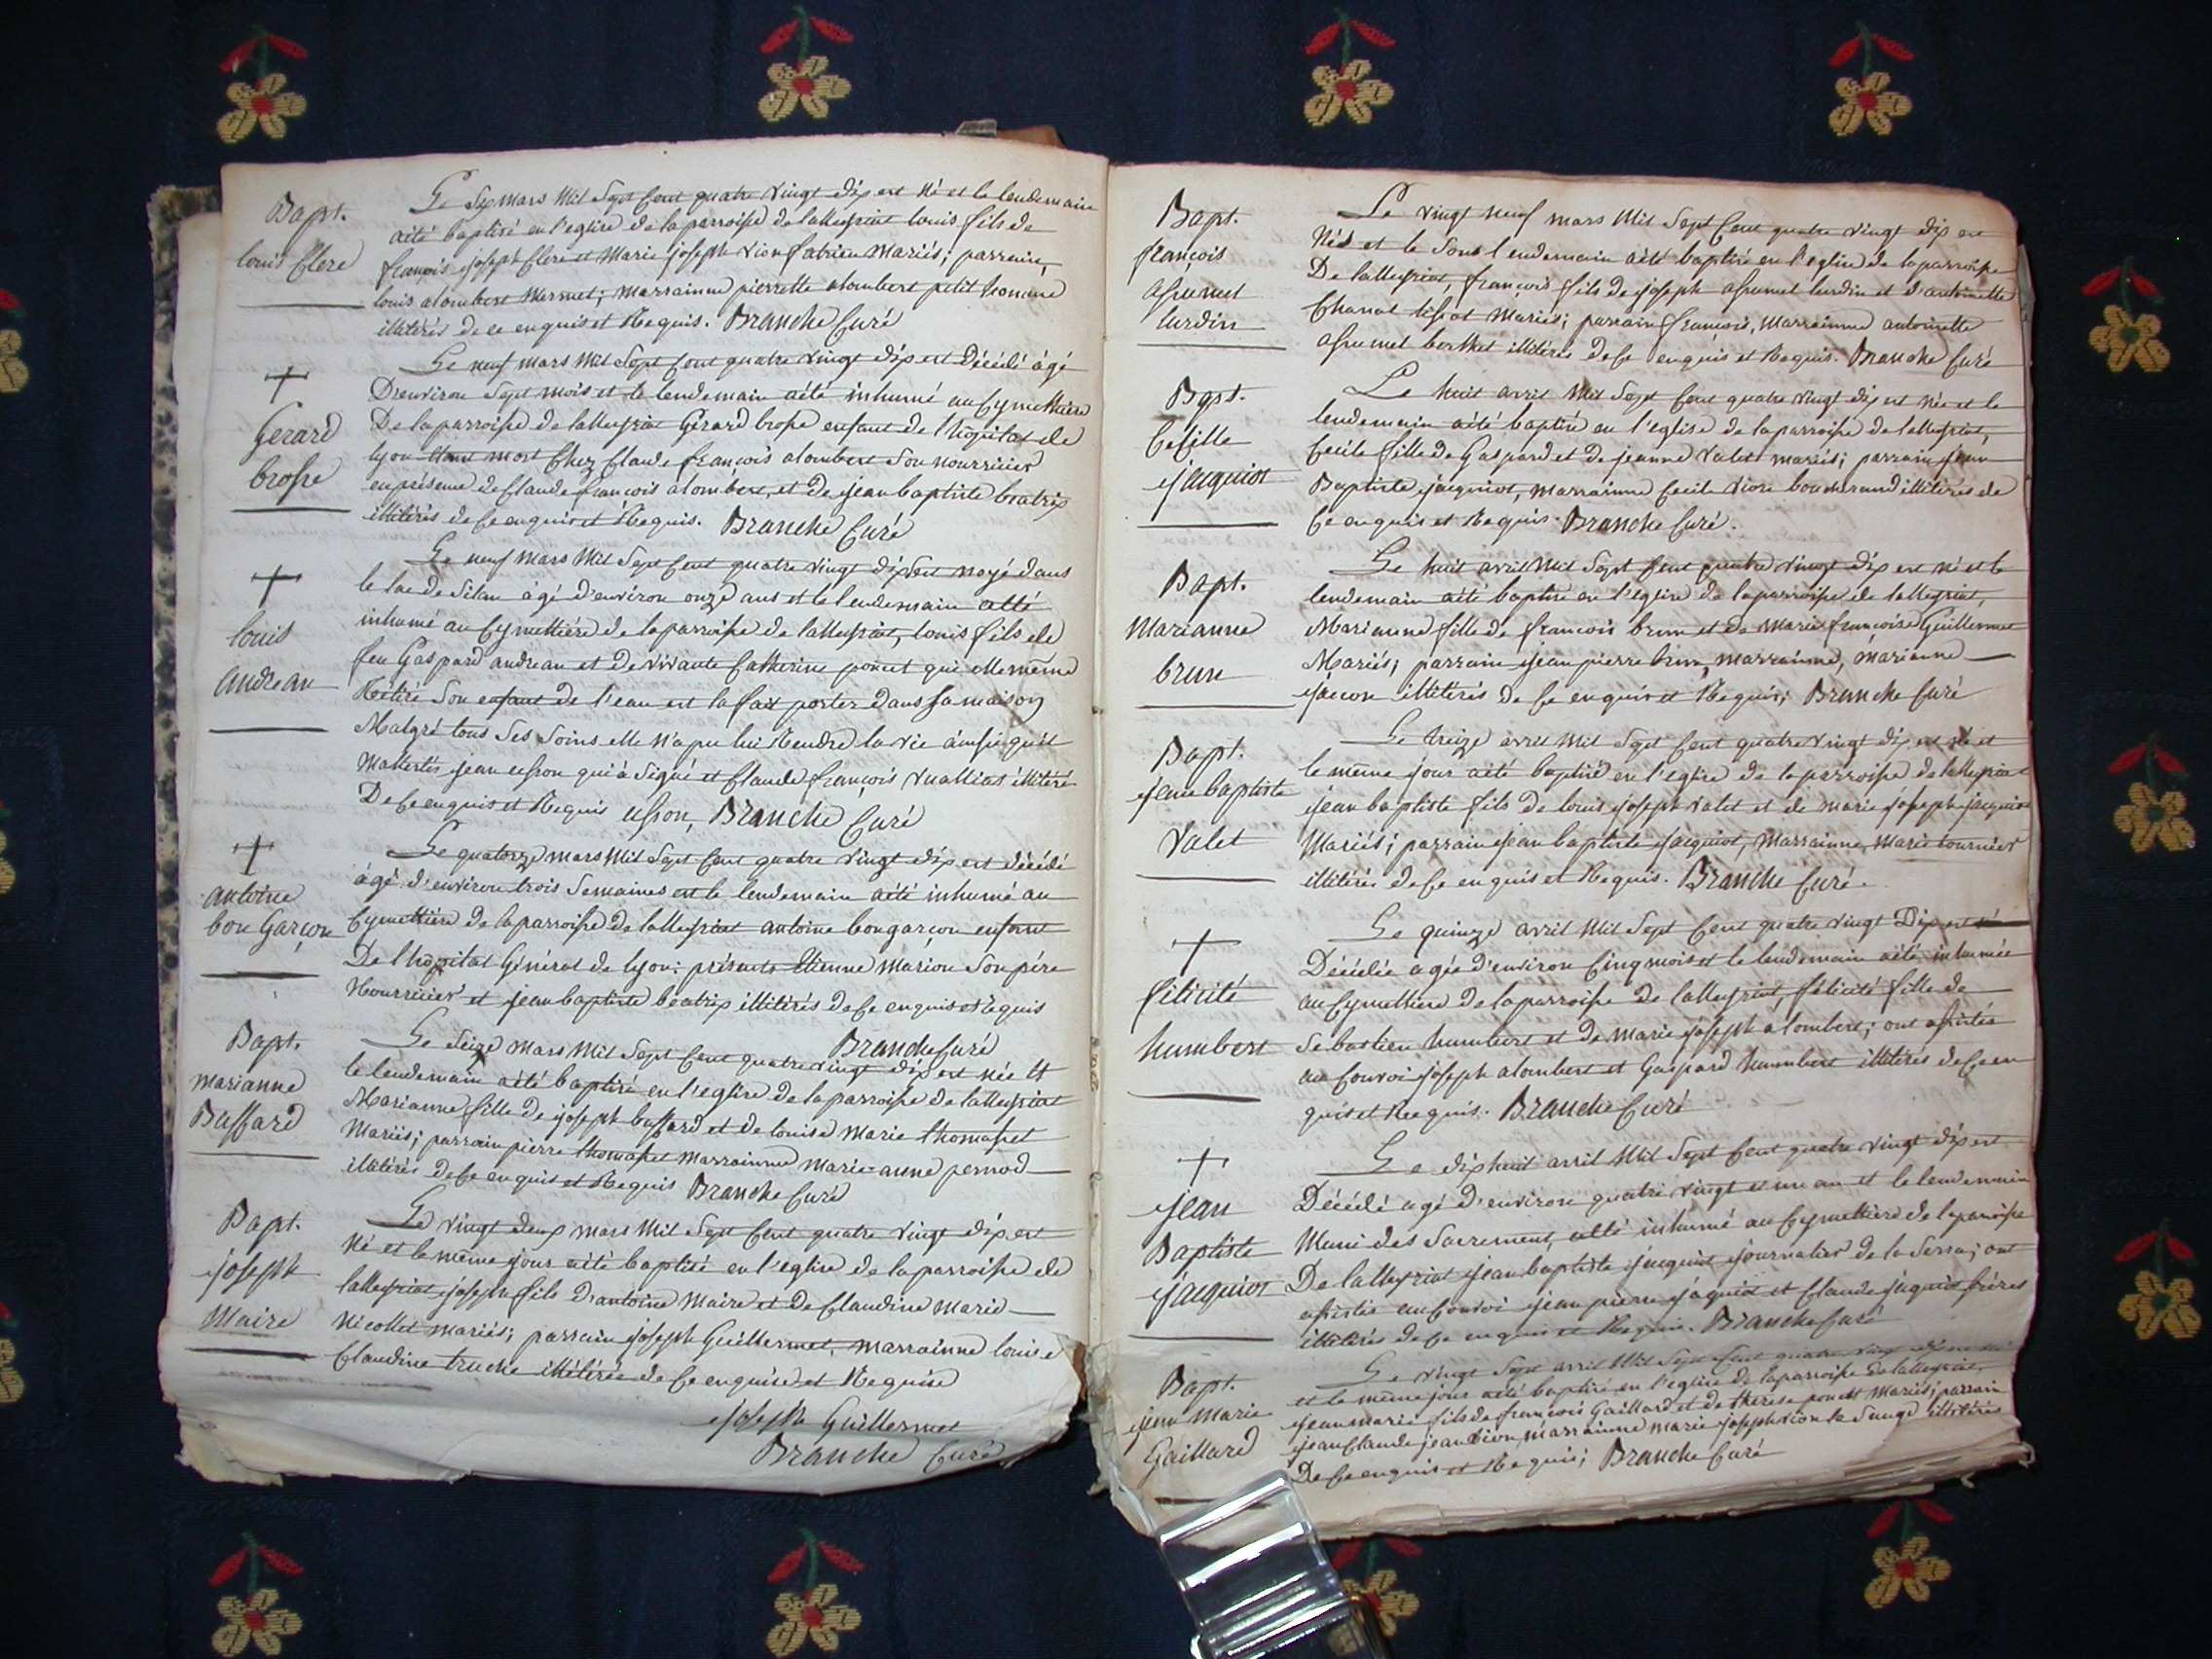 Bapt.
louis Clerc
Le Six mars Mil Sept Cent quatre vingt dix est Né et le lendemain
aété baptisé en l'eglise de la parroisse de lalleyriat louis fils de
françois joseph Clerc et Marie joseph vion fabrieu Mariés; parrain,
louis alombert Mermet; marrainne pierrette alombert petit
illitérés de ce enquis et Requis. Branche Curé
+
Gerard
brosse
Le neuf mars Mil Sept Cent quatre vingt dix est Décédé âgé
D'environ Sept mois et le lendemain aété inhumé au Cymettiére
De la parroisse de lalleyriat Gérard brosse enfant de l'hôpital de
lyon mort Chez Claude françois alombert Son nourricier
en présence de Claude françois alombert, et de jean baptiste béatrix
illitérés de Ce enquis et Requis. Branche Curé
+
louis
andreau
Le neuf mars Mil Sept Cent quatre vingt dix s'est noyé dans
le lac de Silan âgé d'environ onze ans et le lendemain aété
inhumé au Cymettiére de la parroisse de lalleyriat, louis fils de
feu Gaspard andreau et de vivante Catherine poncet qui elle même
Rétiré Son enfant de l'eau et la fait porter dans Sa maison
Malgré tous Ses Soins elle N'a pu lui Rendre la vie ainsi qu'il
jean cusson qui à Signé et Claude françois vuaillat illitéré
De Ce enquis et Requis cusson, Branche Curé
+
antoine
bon Garçon
Le quatorze mars Mil Sept Cent quatre vingt dix est décédé
âgé d'environ trois Semaines et le lendemain aété inhumé au
Cymettiére de la parroisse de lalleyriat antoine bongarçon enfant
De l'hôpital Général de lyon: présents Etienne Marion Son pére
Nourricier et jean baptiste béatrix illitérés de Ce enquis et requis
Branche Curé
Bapt.
marianne
Buffard
Le Seize mars Mil Sept Cent quatre vingt dix est Née et
le lendemain aété baptisé en l'eglise de la parroisse de lalleyriat
Marianne fille de joseph buffard et de louise marie thomasset
Mariés; parrain pierre thomasset marrainne marie-anne pernod
illitérés de Ce enquis et Requis Branche Curé
Bapt.
joseph
Maire
Le vingt deux mars Mil Sept Cent quatre vingt dix est
Né et le même jour aété baptisé en l'eglise de la parroisse de
lalleyriat joseph fils D'antoine Maire et de Claudine marie
Nicollet mariés; parrain joseph Guillermet, marrainne louise
Claudine truche illitérée de Ce enquise et Requise
joseph Guillermet
Branche Curé
Bapt.
françois
asrumet
lurdin
Le vingt neuf mars Mil Sept Cent quatre vingt dix est
Né et le lendemain aété baptisé en l'eglise de la parroisse
De lalleyriat, françois fils de joseph asrumet lurdin et d'antoinette
Chanat tissot Mariés; parrain françois, Marrainne antoinette
asrumet berthet illitérés de Ce enquis et Requis. Branche Curé
Bapt.
Cecille
jaquiot
Le huit avril Mil Sept Cent quatre vingt dix est née et le
lendemain aété baptisé en l'eglise de la parroisse de lalleyriat,
Cecile fille de Gaspard et de jeanne valet mariés; parrain jean
Baptiste jacquiot, marrainne Cecile vion boucherand illitérés de
Ce enquis et Requis. Branche Curé.
Bapt.
Marianne
brun
Le huit avril Mil Sept Cent quatre vingt dix est né et le
lendemain aété baptisé en l'eglise de la parroisse de lalleyriat,
Marianne fille de françois brun et de Marie françoise Guillermet
Mariés; parrain jean pierre brun, marrainne, marianne
jâcon illitérés de Ce enquis et Requis; Branche Curé
Bapt.
jean baptiste
Valet
Le treize avril Mil Sept Cent quatre vingt dix est né et
le même jour aété baptisé en l'eglise de la parroisse de lalleyriat
jean baptiste fils de louis joseph valet et de marie joseph jacquiot
Mariés; parrain jean baptiste jacquiot, Marrainne, Marie tournier
illitérés de Ce enquis et Requis. Branche Curé.
+
félicité
humbert
Le quinze avril Mil Sept Cent quatre vingt Dix est
Décédée agée d'environ Cinq mois et le lendemain aété inhumée
au Cymettiere de la parroisse de lalleyriat, félicité fille de
Sébastien humbert et de marie joseph alombert; ont assistés
au Convoi joseph alombert et Gaspard humbert illitérés de Ce en
quis et Requis. Branche Curé
+
jean
Baptiste
jacquiot
Le dix huit avril Mil Sept Cent quatre vingt dix est
Décédé agé d'environ quatre vingt et un an et le lendemain
Muni des Sacrement, aété inhumé au Cymettiere de la parroisse
De lalleyriat jean baptiste jacquiot journalier de la Serra; ont
assistés au Convoi jean pierre jâquiot et Claude jaquiot fréres
illitérés de Ce enquis et Requis. Branche Curé
Bapt.
jean Marie
Gaillard
Le vingt Sept avril Mil Sept Cent quatre vingt dix est né
et le même jour aété baptisé en l'eglise de la parroisse de lalleyriat,
jean marie fils de françois Gaillard et de therese poncet Mariés; parrain
jean Claude jean vion, marrainne marie joseph vion la Sauge illitérés
De Ce enquis et Requis; Branche Curé